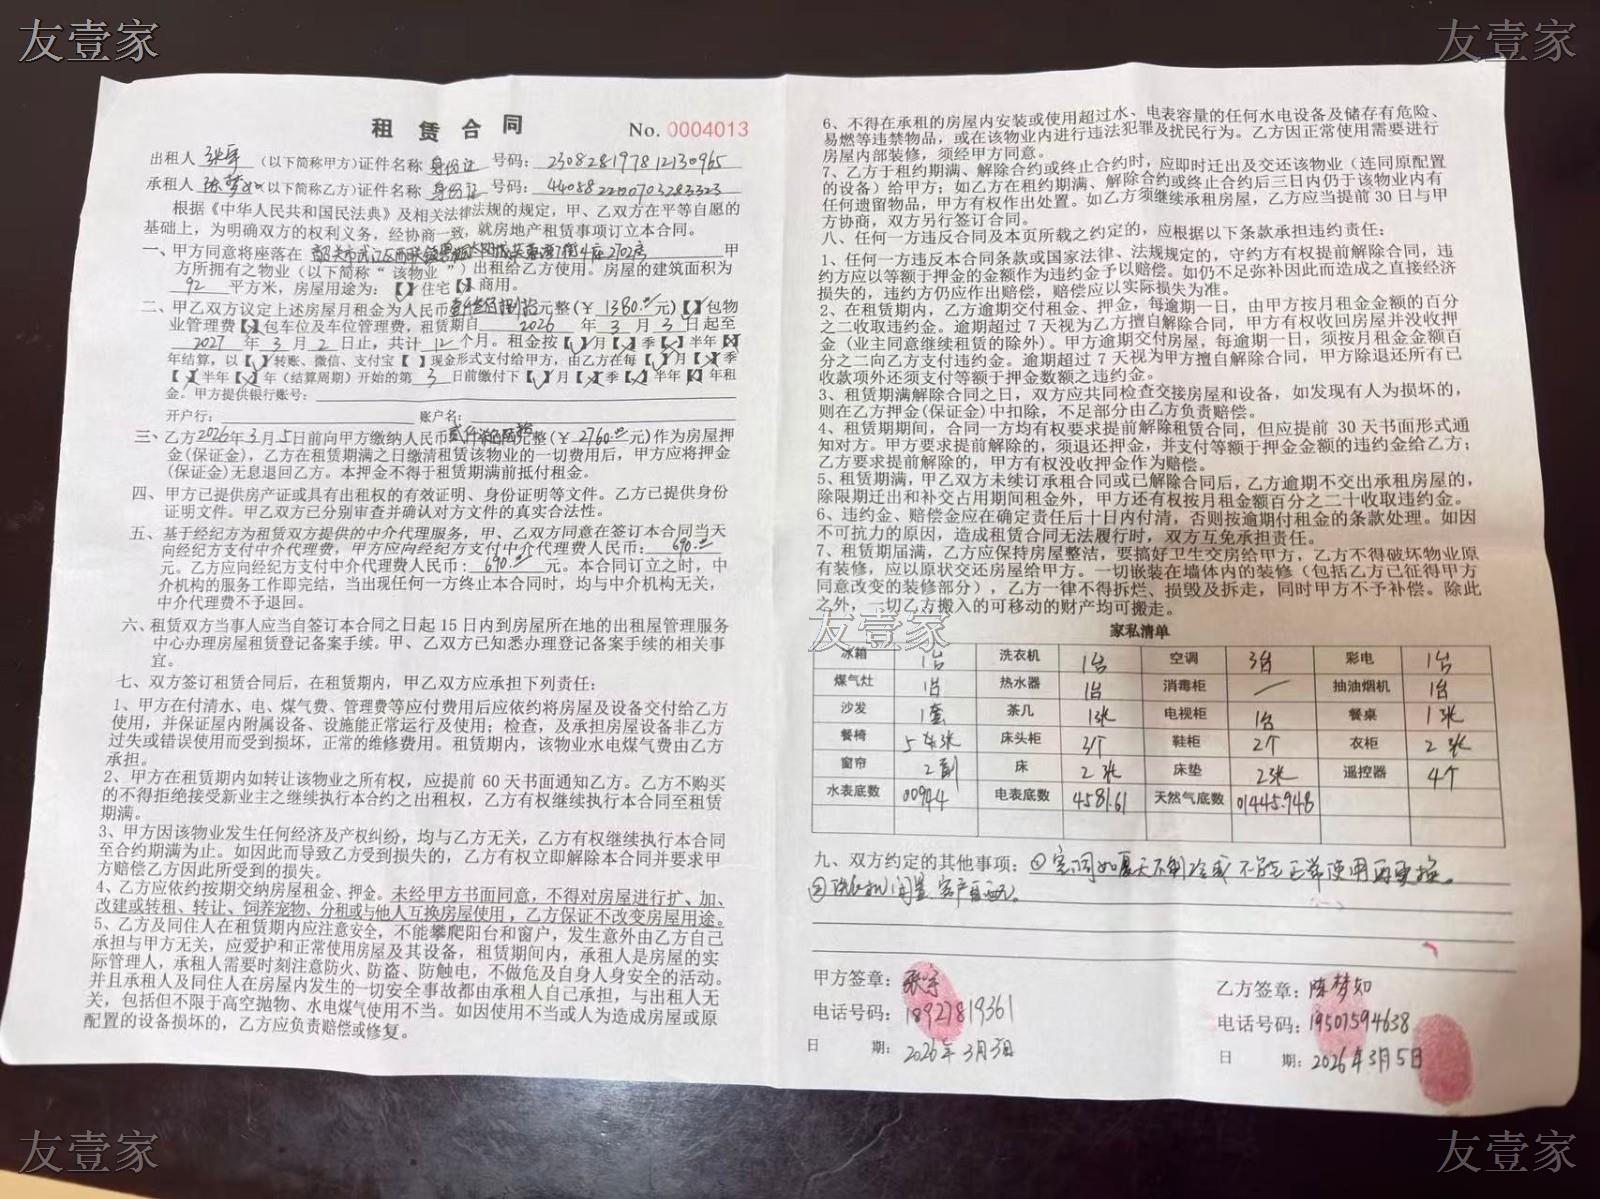 友壹家
友壹家
租赁合同 No. 0004013
出租人 张宇 (以下简称甲方)证件名称 身份证 号码: 230828197812130965
承租人 陈梦如 (以下简称乙方)证件名称 身份证 号码:
根据《中华人民共和国民法典》及相关法律法规的规定，甲、乙双方在平等自愿的
基础上，为明确双方的权利义务，经协商一致，就房地产租赁事项订立本合同。
一、甲方同意将座落在 韶关市武江区 4座2702房 甲
方所拥有之物业（以下简称“该物业”）出租给乙方使用。房屋的建筑面积为
92 平方米，房屋用途为：【√】住宅【×】商用。
二、甲乙双方议定上述房屋月租金为人民币壹仟叁佰捌拾元整(￥ 1380.00 元)【】包物
业管理费【】包车位及车位管理费，租赁期自 2026 年 3 月 3 日起至
2027 年 3 月 2 日止，共计 12 个月。租金按【√】月【×】季【×】半年【×】
年结算，以【√】转账、微信、支付宝【 】现金形式支付给甲方，由乙方在每【√】月【×】季
【×】半年【×】年（结算周期）开始的第 3 日前缴付下【√】月【×】季【×】半年【×】年租
金。甲方提供银行账号：
开户行： 账户名：
三、乙方2026年3月5日前向甲方缴纳人民币贰仟柒佰陆拾元整(￥ 2760.00 元)作为房屋押
金(保证金)，乙方在租赁期满之日缴清租赁该物业的一切费用后，甲方应将押金
(保证金)无息退回乙方。本押金不得于租赁期满前抵付租金。
四、甲方已提供房产证或具有出租权的有效证明、身份证明等文件。乙方已提供身份
证明文件。甲乙双方已分别审查并确认对方文件的真实合法性。
五、基于经纪方为租赁双方提供的中介代理服务，甲、乙双方同意在签订本合同当天
向经纪方支付中介代理费，甲方应向经纪方支付中介代理费人民币： 690.00
元。乙方应向经纪方支付中介代理费人民币： 690.00 元。本合同订立之时，中
介机构的服务工作即完结，当出现任何一方终止本合同时，均与中介机构无关，
中介代理费不予退回。
六、租赁双方当事人应当自签订本合同之日起 15 日内到房屋所在地的出租屋管理服务
中心办理房屋租赁登记备案手续。甲、乙双方已知悉办理登记备案手续的相关事
宜。
七、双方签订租赁合同后，在租赁期内，甲乙双方应承担下列责任：
1、甲方在付清水、电、煤气费、管理费等应付费用后应依约将房屋及设备交付给乙方
使用，并保证屋内附属设备、设施能正常运行及使用；检查，及承担房屋设备非乙方
过失或错误使用而受到损坏，正常的维修费用。租赁期内，该物业水电煤气费由乙方
承担。
2、甲方在租赁期内如转让该物业之所有权，应提前 60 天书面通知乙方。乙方不购买
的不得拒绝接受新业主之继续执行本合约之出租权，乙方有权继续执行本合同至租赁
期满。
3、甲方因该物业发生任何经济及产权纠纷，均与乙方无关，乙方有权继续执行本合同
至合约期满为止。如因此而导致乙方受到损失的，乙方有权立即解除本合同并要求甲
方赔偿乙方因此所受到的损失。
4、乙方应依约按期交纳房屋租金、押金。未经甲方书面同意，不得对房屋进行扩、加、
改建或转租、转让、饲养宠物、分租或与他人互换房屋使用，乙方保证不改变房屋用途。
5、乙方及同住人在租赁期内应注意安全，不能攀爬阳台和窗户，发生意外由乙方自己
承担与甲方无关，应爱护和正常使用房屋及其设备，租赁期间内，承租人是房屋的实
际管理人，承租人需要时刻注意防火、防盗、防触电，不做危及自身人身安全的活动。
并且承租人及同住人在房屋内发生的一切安全事故都由承租人自己承担，与出租人无
关，包括但不限于高空抛物、水电煤气使用不当。如因使用不当或人为造成房屋或原
配置的设备损坏的，乙方应负责赔偿或修复。
6、不得在承租的房屋内安装或使用超过水、电表容量的任何水电设备及储存有危险、
易燃等违禁物品，或在该物业内进行违法犯罪及扰民行为。乙方因正常使用需要进行
房屋内部装修，须经甲方同意。
7、乙方于租约期满、解除合约或终止合约时，应即时迁出及交还该物业（连同原配置
的设备）给甲方；如乙方在租约期满、解除合约或终止合约后三日内仍于该物业内有
任何遗留物品，甲方有权作出处置。如乙方须继续承租房屋，乙方应当提前 30 日与甲
方协商，双方另行签订合同。
八、任何一方违反合同及本页所载之约定的，应根据以下条款承担违约责任：
1、任何一方违反本合同条款或国家法律、法规规定的，守约方有权提前解除合同，违
约方应以等额于押金的金额作为违约金予以赔偿。如仍不足弥补因此而造成之直接经济
损失的，违约方仍应作出赔偿，赔偿应以实际损失为准。
2、在租赁期内，乙方逾期交付租金、押金，每逾期一日，由甲方按月租金金额的百分
之二收取违约金。逾期超过 7 天视为乙方擅自解除合同，甲方有权收回房屋并没收押
金（业主同意继续租赁的除外）。甲方逾期交付房屋，每逾期一日，须按月租金金额百
分之二向乙方支付违约金。逾期超过 7 天视为甲方擅自解除合同，甲方除退还所有已
收款项外还须支付等额于押金数额之违约金。
3、租赁期满解除合同之日，双方应共同检查交接房屋和设备，如发现有人为损坏的，
则在乙方押金(保证金)中扣除，不足部分由乙方负责赔偿。
4、租赁期期间，合同一方均有权要求提前解除租赁合同，但应提前 30 天书面形式通
知对方。甲方要求提前解除的，须退还押金，并支付等额于押金金额的违约金给乙方；
乙方要求提前解除的，甲方有权没收押金作为赔偿。
5、租赁期满，甲乙双方未续订承租合同或已解除合同后，乙方逾期不交出承租房屋的，
除限期迁出和补交占用期间租金外，甲方还有权按月租金额百分之二十收取违约金。
6、违约金、赔偿金应在确定责任后十日内付清，否则按逾期付租金的条款处理。如因
不可抗力的原因，造成租赁合同无法履行时，双方互免承担责任。
7、租赁期届满，乙方应保持房屋整洁，要搞好卫生交房给甲方，乙方不得破坏物业原
有装修，应以原状交还房屋给甲方。一切嵌装在墙体内的装修（包括乙方已征得甲方
同意改变的装修部分），乙方一律不得拆烂、损毁及拆走，同时甲方不予补偿。除此
之外，一切乙方搬入的可移动的财产均可搬走。
友壹家
家私清单
冰箱 1台 洗衣机 1台 空调 3台 彩电 1台
煤气灶 1台 热水器 1台 消毒柜 / 抽油烟机 1台
沙发 1套 茶几 1张 电视柜 1台 餐桌 1张
餐椅 5张 床头柜 3个 鞋柜 2个 衣柜 2张
窗帘 2副 床 2张 床垫 2张 遥控器 4个
水表底数 00944 电表底数 4581.61 天然气底数 01445.948
九、双方约定的其他事项：①空调如夏天不制冷或不能正常使用再更换。
②洗衣机闲置，客户自配。
甲方签章：张宇
电话号码：18927819361
日 期：2026年3月3日
乙方签章：陈梦如
电话号码：19507594638
日 期：2026年3月5日
友壹家
友壹家